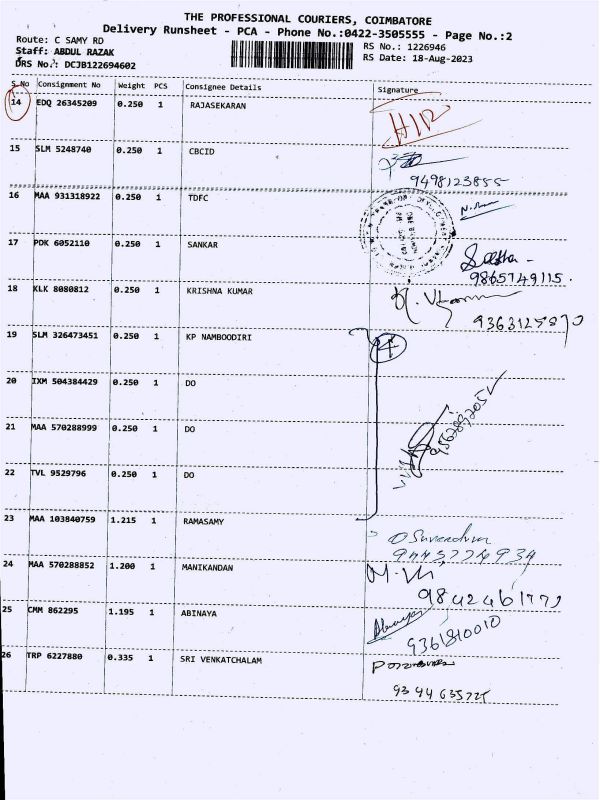 THE PROFESSIONAL COURIERS, COIMBATORE
Delivery Runsheet - PCA - Phone No.:0422-3505555 - Page No.:2
Route: C SAMY RD
RS No.: 1226946
Staff: ABDUL RAZAK
RS Date: 18-Aug-2023
DRS No.: DCJB122694602
S.No Consignment No Weight PCS Consignee Details Signature
14 EDQ 26345209 0.250 1 RAJASEKARAN
15 SLM 5248740 0.250 1 CBCID
9498123855
16 MAA 931318922 0.250 1 TDFC
17 PDK 6052110 0.250 1 SANKAR
9865749115.
18 KLK 8080812 0.250 1 KRISHNA KUMAR
19 SLM 326473451 0.250 1 KP NAMBOODIRI 4
20 IXM 504384429 0.250 1 DO
21 MAA 570288999 0.250 1 DO
22 TVL 9529796 0.250 1 DO
23 MAA 103840759 1.215 1 RAMASAMY
24 MAA 570288852 1.200 1 MANIKANDAN
25 CMM 862295 1.195 1 ABINAYA
9361810010
26 TRP 6227880 0.335 1 SRI VENKATCHALAM